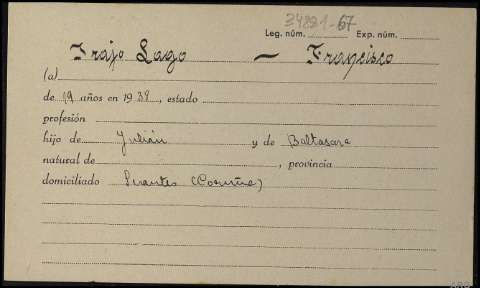 34821-67
Leg. núm. Exp. núm.
Frajo Lago — Francisco
(a)
de 19 años en 1938, estado
profesión
hijo de Julián y de Baltasara
natural de , provincia
domiciliado Serantes (Coruña)